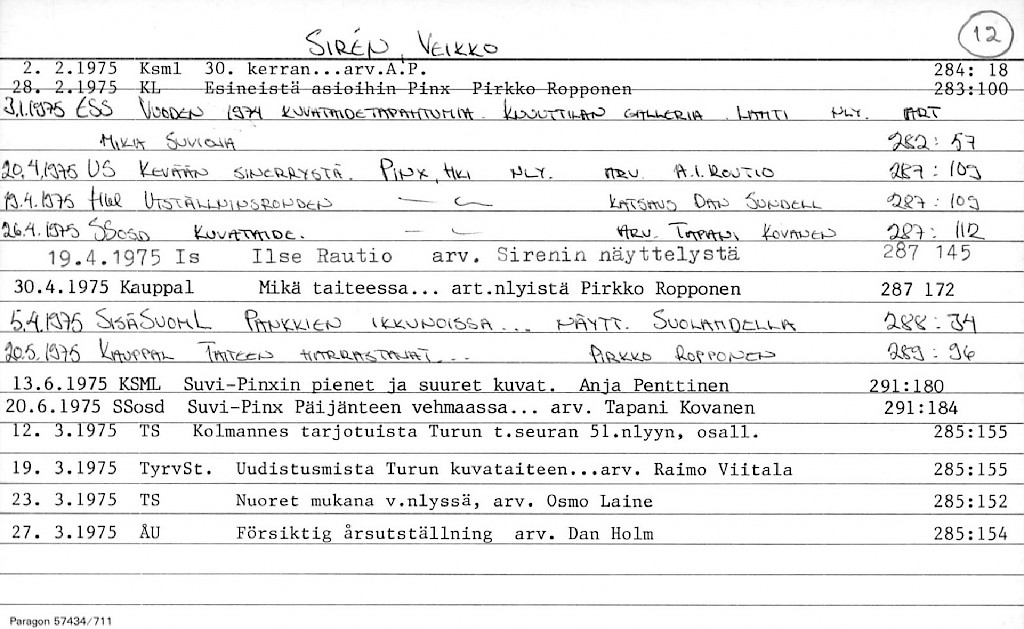 12
SIRÉN, VEIKKO
2. 2.1975 Ksml 30. kerran...arv.A.P. 284: 18
28. 2.1975 KL Esineistä asioihin Pinx Pirkko Ropponen 283:100
3.1.1975 ESS VUODEN 1974 KUVATAIDETAPAHTUMIA. KUUTTILAN GALLERIA. LAHTI NLY. ART
MIKIA SUVIOJA 282:57
20.4.1975 US KEVÄÄN SINERRYSTÄ. PINX, HKI NLY. ARV. A.I.ROUTIO 287:109
19.4.1975 Hbl UTSTÄLLNINGSRONDEN — " — KATSAUS DAN SUNDELL 287:109
26.4.1975 SSosd KUVATAIDE. — " — ARV. TAPANI KOVANEN 287:112
19.4.1975 Is Ilse Rautio arv. Sirenin näyttelystä 287 145
30.4.1975 Kauppal Mikä taiteessa... art.nlyistä Pirkko Ropponen 287 172
5.4.1975 SISÄSUOML PANKKIEN IKKUNOISSA... NÄYTT. SUOLAHDELLA 288:34
20.5.1975 KAUPPAL TAITEEN HARRASTAJAT... PIRKKO ROPPONEN 289:96
13.6.1975 KSML Suvi-Pinxin pienet ja suuret kuvat. Anja Penttinen 291:180
20.6.1975 SSosd Suvi-Pinx Päijänteen vehmaassa... arv. Tapani Kovanen 291:184
12. 3.1975 TS Kolmannes tarjotuista Turun t.seuran 51.nlyyn, osall. 285:155
19. 3.1975 TyrvSt. Uudistusmista Turun kuvataiteen...arv. Raimo Viitala 285:155
23. 3.1975 TS Nuoret mukana v.nlyssä, arv. Osmo Laine 285:152
27. 3.1975 ÅU Försiktig årsutställning arv. Dan Holm 285:154
Paragon 57434/711